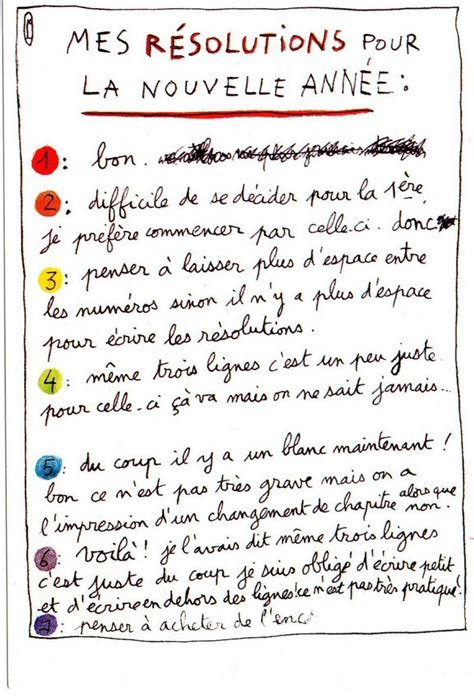 MES RÉSOLUTIONS POUR
LA NOUVELLE ANNÉE :
1 : bon.
2 : difficile de se décider pour la 1ère,
je préfère commencer par celle-ci. donc
3 : penser à laisser plus d'espace entre
les numéros sinon il n'y a plus d'espace
pour écrire les résolutions.
4 : même trois lignes c'est un peu juste.
pour celle-ci çà va mais on ne sait jamais...
5 : du coup il y a un blanc maintenant !
bon ce n'est pas très grave mais on a
l'impression d'un changement de chapitre alors que non.
6 : voilà ! je l'avais dit même trois lignes
c'est juste du coup je suis obligé d'écrire petit
et d'écrire en dehors des lignes ! ce n'est pas très pratique !
7 : penser à acheter de l'enc